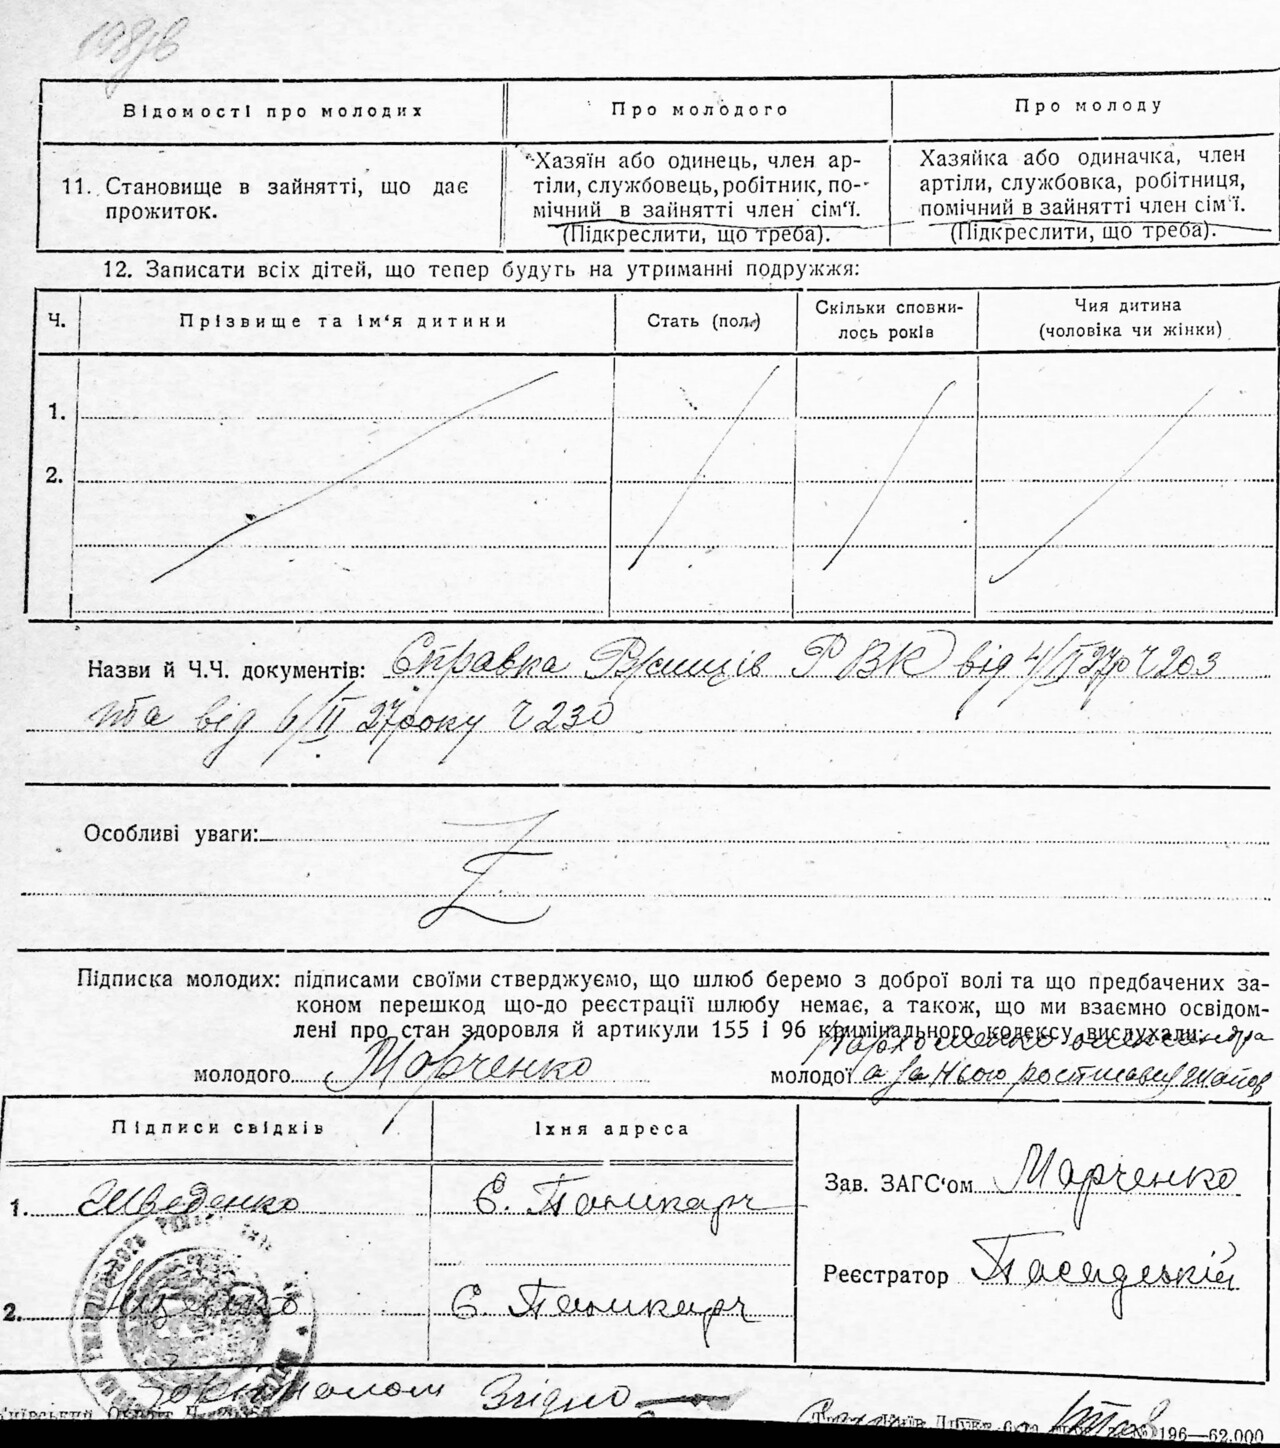 Відомості про молодих
Про молодого
Про молоду
11. Становище в зайнятті, що дає
прожиток.
Хазяїн або одинець, член ар-
тіли, службовець, робітник, по-
мічний в зайнятті член сім'ї.
(Підкреслити, що треба).
Хазяйка або одиначка, член
артіли, службовка, робітниця,
помічний в зайнятті член сім'ї.
(Підкреслити, що треба).
12. Записати всіх дітей, що тепер будуть на утриманні подружжя:
Ч.
Прізвище та ім'я дитини
Стать (пол.)
Скільки сповни-
лось років
Чия дитина
(чоловіка чи жінки)
1.
2.
Назви й Ч.Ч. документів: Справка Ржищів РВК від 4/II 27р Ч 203
та від 6/II 27 року Ч 230
Особливі уваги:
Підписка молодих: підписами своїми стверджуємо, що шлюб беремо з доброї волі та що предбачених за-
коном перешкод що-до реєстрації шлюбу немає, а також, що ми взаємно освідом-
лені про стан здоровля й артикули 155 і 96 кримінального кодексу вислухали:
молодого Марченко
молодої а за нього росписався
Підписи свідків
Їхня адреса
1. Шведенко
2.
Зав. ЗАГС'ом Марченко
Реєстратор
Згідно
196—62.000